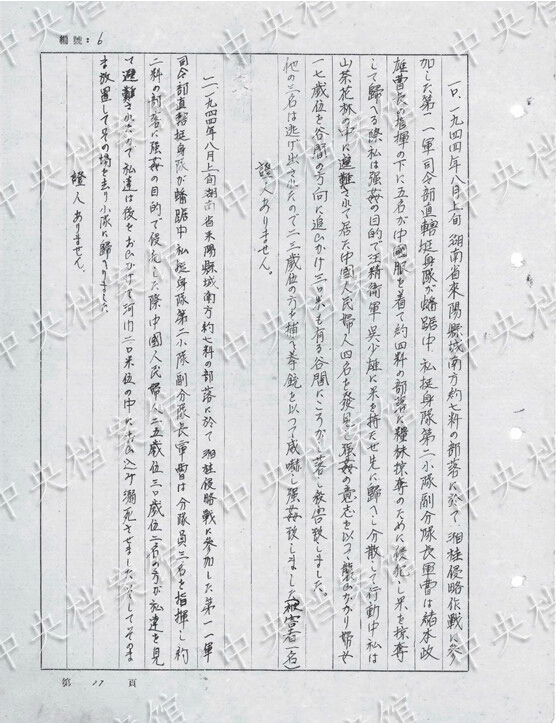 編號：6
一〇、一九四四年八月上旬 湖南省来陽縣城南方約七粁の部落に於て、湘桂侵略作戦に参
加した第一一軍司令部直轄挺身隊が蟠踞中 私挺身隊第二小隊副分隊長軍曹は
雄曹長の指揮の下に五名が中國服を着て約四粁の部落に糧秣掠奪のために侵犯し米を掠奪
して歸へる際私は強姦の目的で汪精衛軍 呉少雄に米を持たせ先に歸へし分散して行動中私は
山茶花林の中に避難されて居た中國人民婦人四名を發見し強姦の意志を以つて襲ひかかり
一七歳位を谷間の方向に追ひかけ二〇米も有る谷間にころがし落し殺害致しました。
他の三名は逃げ出されたので二三歳位の方を捕へ拳銃を以つて威嚇し強姦致しました（被害者一名）
證人ありません。
一一、一九四四年八月上旬湖南省来陽縣城南方約七粁の部落に於て 湘桂侵略戦に参加した第一一軍
司令部直轄挺身隊が蟠踞中 私挺身隊第二小隊副分隊長軍曹は分隊員三名を指揮し約
二粁の部落に強姦の目的で侵犯した際中國人民婦人二五歳位三〇歳位二名の方が私達を見
て避難されたので私達は後をおひかけて河巾二〇米位の中におひ込み溺死させました そしてそのま
ま放置してその場を去り小隊に歸へりました
證人ありません。
第 17 頁
中央档案馆